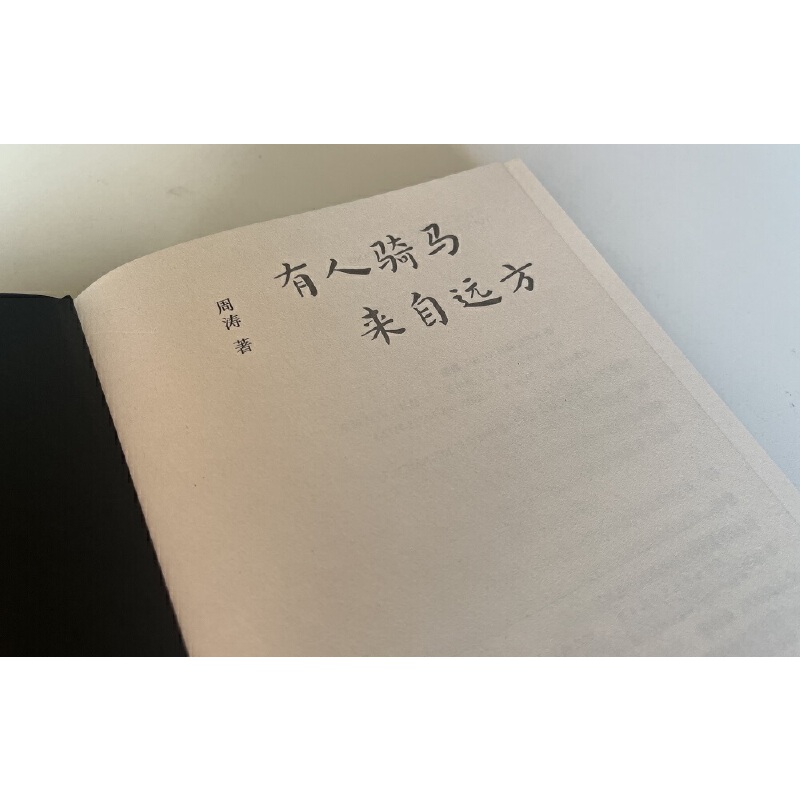 有人骑马
来自远方
周涛 著